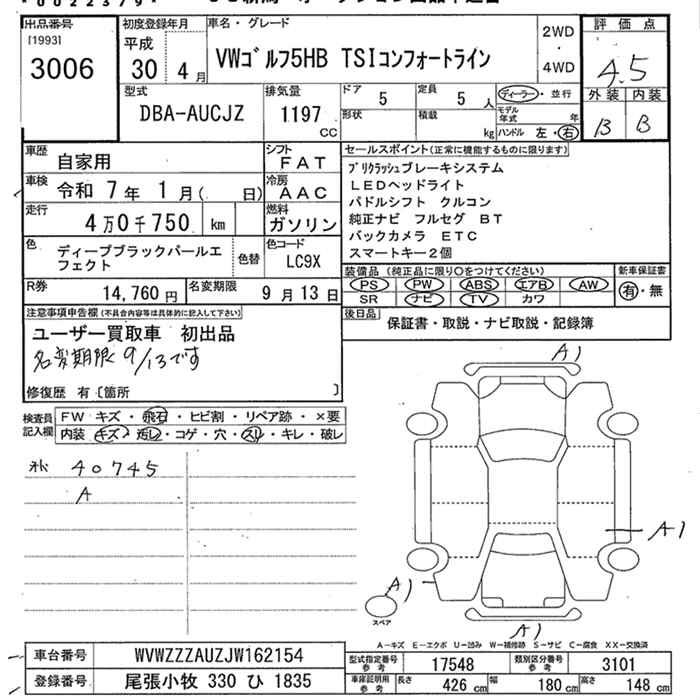 *0022379*
出品番号 初度登録年月 車名・グレード 2WD ・ 4WD 評価点
[1993] 3006 平成 30年 4月 VWゴルフ5HB TSIコンフォートライン 4.5
型式 排気量 ドア 5 定員 5人 ディーラー・並行 外装 内装
DBA-AUCJZ 1197cc 形状 積載 kg モデル年式 年 ハンドル 左・右 B B
車歴 自家用 シフト FAT セールスポイント(正常に機能するものに限ります)
車検 令和 7年 1月( 日) 冷房 AAC プリクラッシュブレーキシステム
LEDヘッドライト
走行 4万0千750 km 燃料 ガソリン パドルシフト クルコン
純正ナビ フルセグ BT
色 ディープブラックパールエフェクト 色替 色コード LC9X バックカメラ ETC
スマートキー2個
R券 14,760円 名変期限 9月13日 装備品(純正品に限り○をつけてください) 新車保証書
PS PW ABS エアB AW 有・無
SR ナビ TV カワ
注意事項申告欄(不具合内容等は具体的に記入して下さい) 後日品 保証書・取説・ナビ取説・記録簿
ユーザー買取車 初出品
名変期限9/13です
修復歴 有〔箇所 〕
検査員記入欄 FW キズ・飛石・ヒビ割・リペア跡・×要
内装 キズ・汚レ・コゲ・穴・スリ・キレ・破レ
A1
40745
A
A1
A1
A1
スペア
A-キズ E-エクボ U-凹み W-補修跡 S-サビ C-腐食 XX-交換済
車台番号 WVWZZZAUZJW162154 型式指定番号参考 17548 類別区分番号参考 3101
登録番号 尾張小牧 330 ひ 1835 車庫証明用参考 長さ 426cm 幅 180cm 高さ 148cm